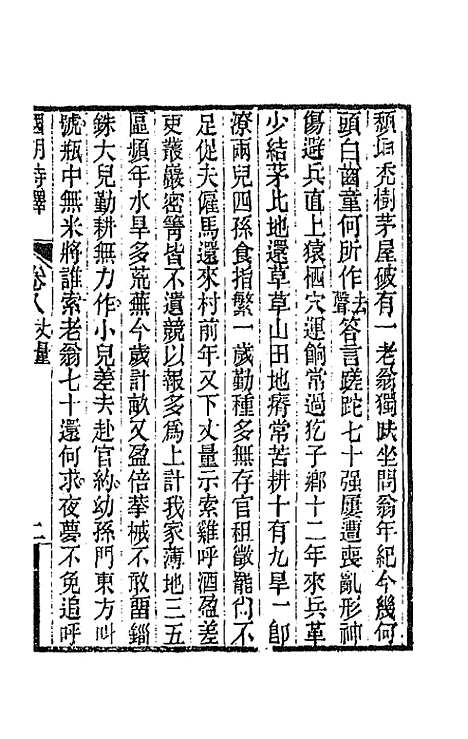 頽垣禿樹茅屋破有一老翁獨趺坐問翁年紀今幾何
頭白齒童何所作去聲答言蹉跎七十強屢遭喪亂形神
傷避兵直上猿栖穴運餉常過犵子鄉十二年來兵革
少結茅比地還草草山田地瘠常苦耕十有九旱一卽
潦兩兒四孫食指繁一歲勤種多無存官租徵罷尙不
足促夫僱馬還來村前年又下丈量示索雞呼酒盈差
吏叢嚴密箐皆不遺競以報多爲上計我家薄地三五
區頻年水旱多荒蕪今歲計畝又盈倍拲械不敢畱錙
銖大兒勤耕無力作小兒差夫赴官約幼孫門東方叫
號瓶中無米將誰索老翁七十還何求夜夢不免追呼
國朝詩鐸
卷八 丈量
二